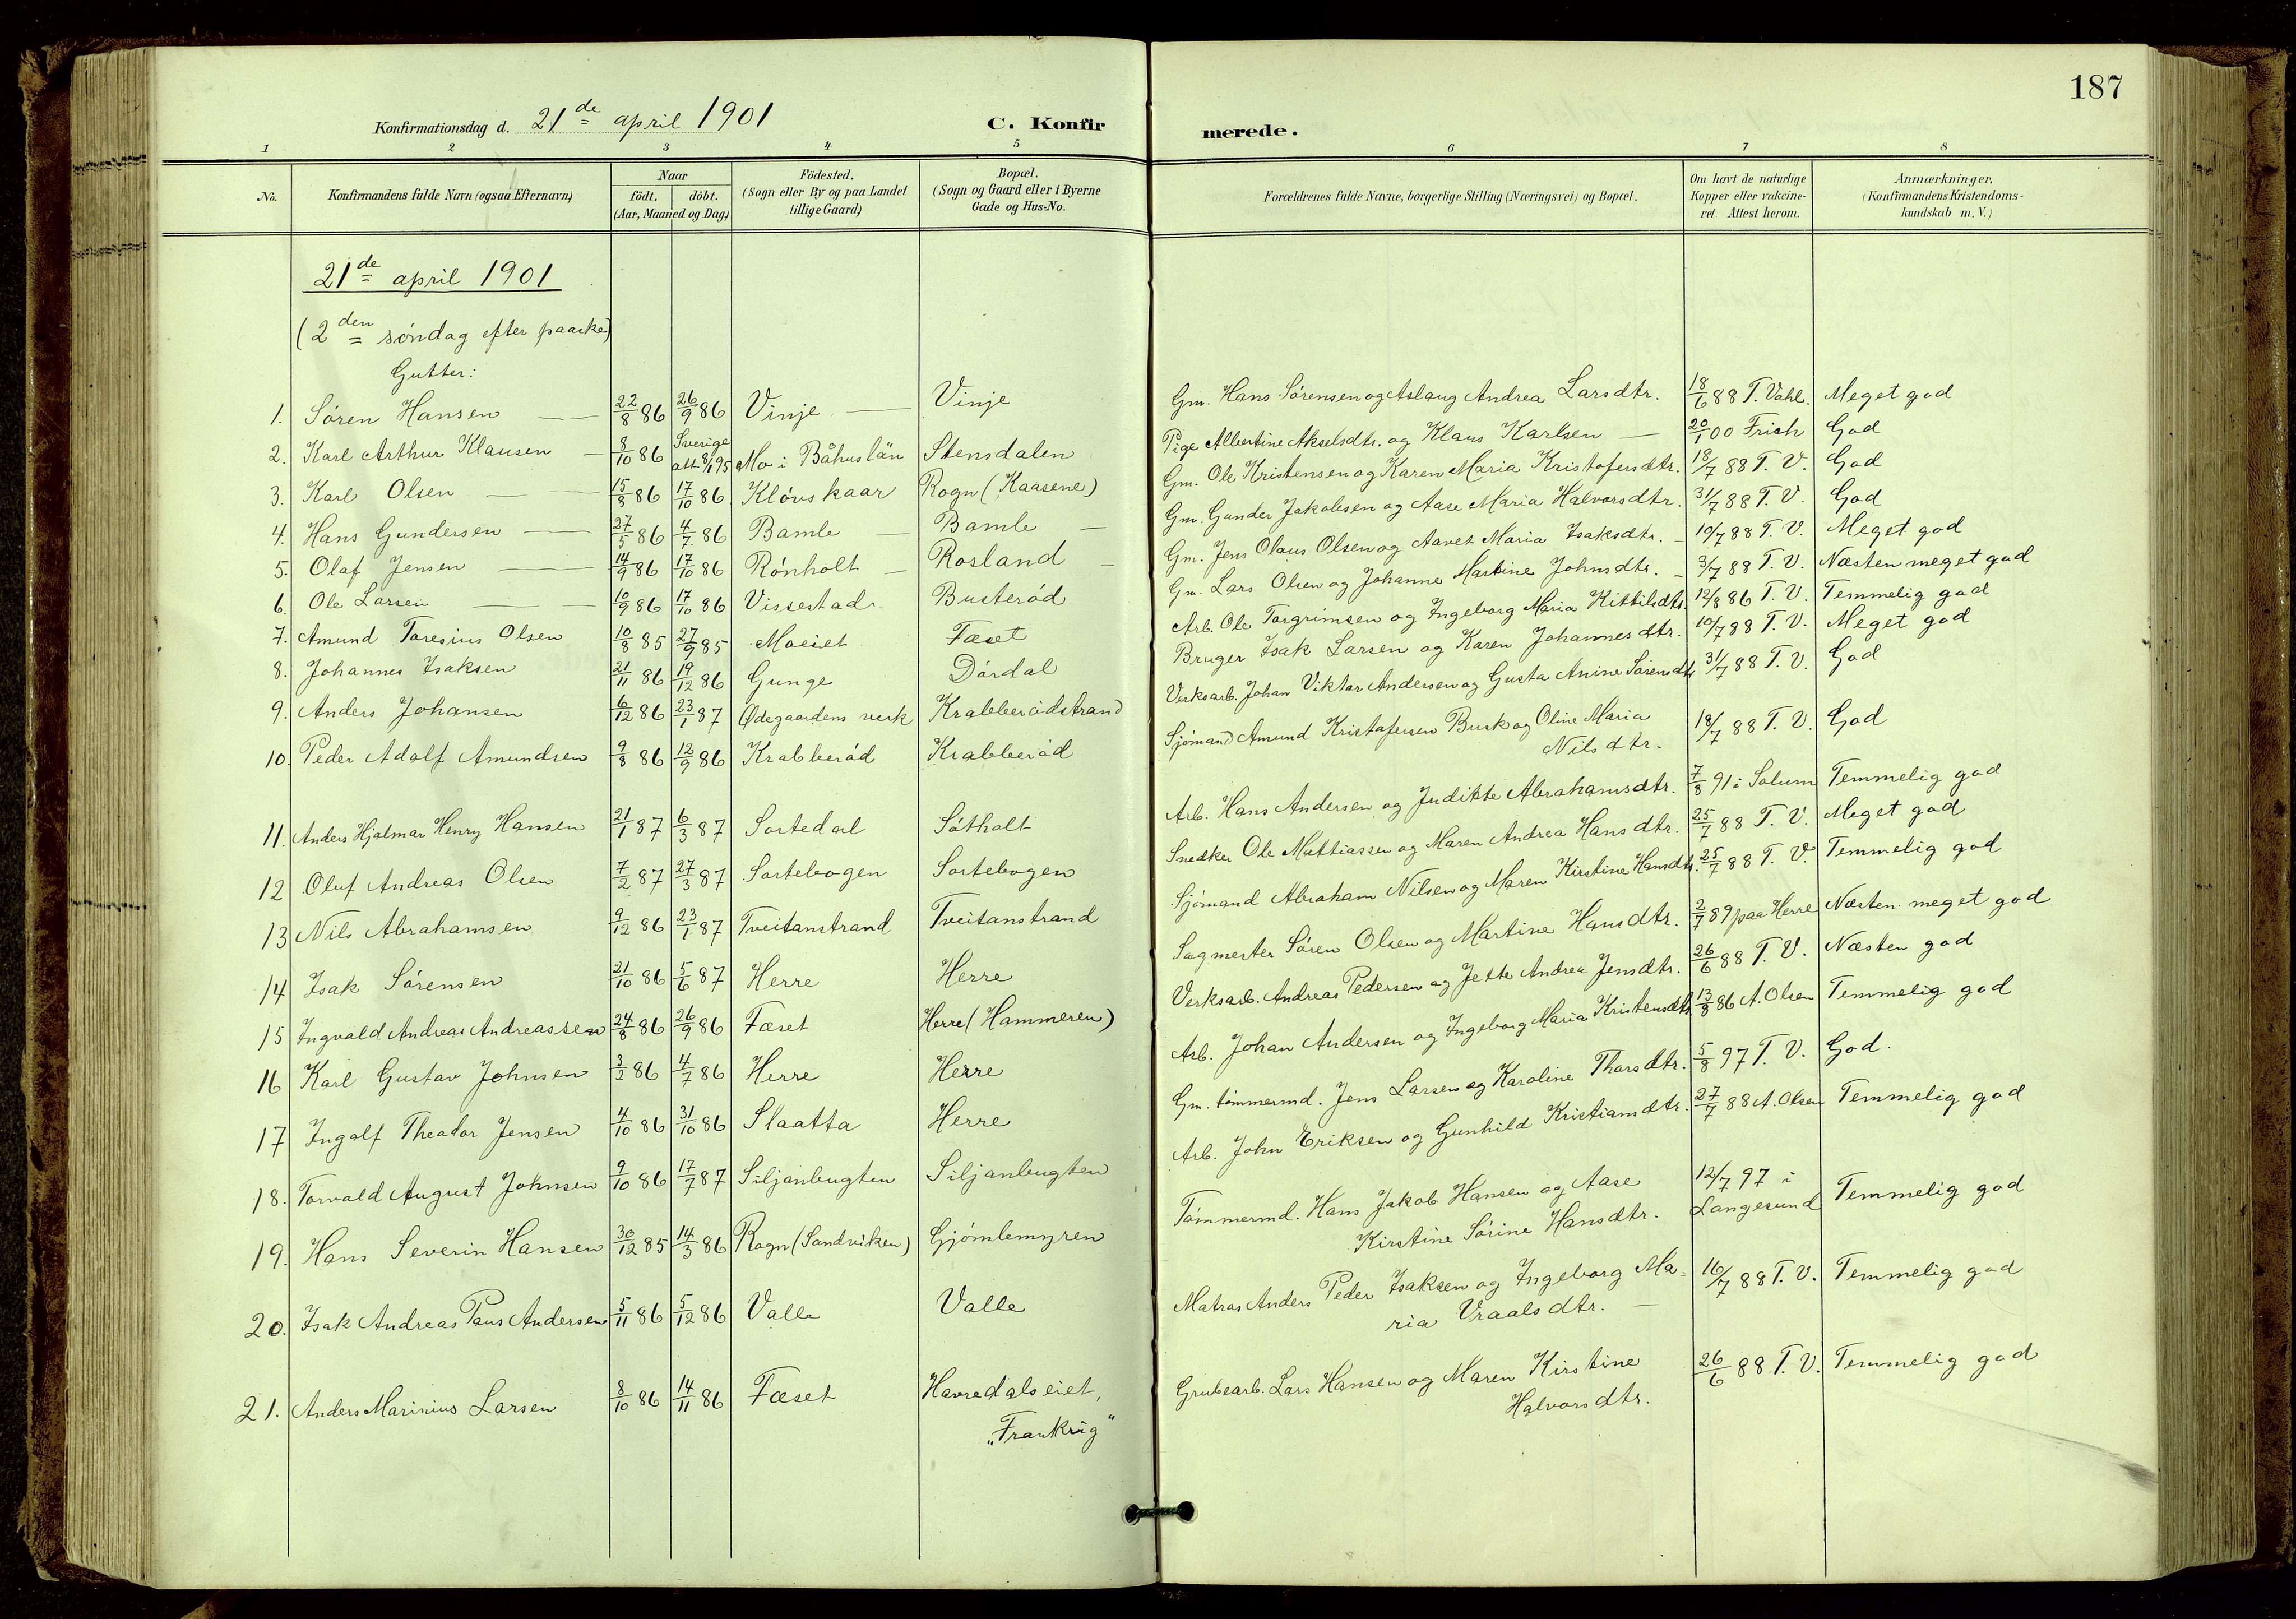 187
Konfirmationsdag d. 21de april 1901 C. Konfirmerede.
1 2 3 4 5 6 7 8
No. Konfirmandens fulde Navn (ogsaa Efternavn) Naar födt. döbt. (Aar, Maaned og Dag) Födested. (Sogn eller By og paa Landet tillige Gaard) Bopæl. (Sogn og Gaard eller i Byerne Gade og Hus-No. Forældrenes fulde Navne, borgerlige Stilling (Næringsvei) og Bopæl. Om havt de naturlige Kopper eller vakcineret. Attest herom. Anmærkninger. (Konfirmandens Kristendomskundskab m. V.)
21de april 1901
(2den söndag efter paaske)
Gutter:
1. Sören Hansen 22/8 86 26/9 86 Vinje Vinje Gm. Hans Sörensen og Aslaug Andrea Larsdtr. 18/6 88 T. Vahl. Meget god
2. Karl Arthur Klausen 8/10 86 Sverige att. 8/1 95 Mo i Båhuslän Stensdalen Pige Albertine Akselsdtr. og Klaus Karlsen 20/1 00 Frich God
3. Karl Olsen 15/8 86 17/10 86 Klövskaar Rogn (Kaasene) Gm. Ole Kristensen og Karen Maria Kristofersdtr. 18/7 88 T. V. God
4. Hans Gundersen 27/5 86 4/7 86 Bamle Bamle Gm. Gunder Jakobsen og Aase Maria Halvorsdtr. 31/7 88 T. V. God
5. Olaf Jensen 14/9 86 17/10 86 Rönholt Rosland Gm. Jens Olaus Olsen og Aavet Maria Isaksdtr. 10/7 88 T. V. Meget god
6. Ole Larsen 10/9 86 17/10 86 Vissestad Busteröd Gm. Lars Olsen og Johanne Martine Johnsdtr. 3/7 88 T. V. Næsten meget god
7. Amund Toresius Olsen 10/8 85 27/9 85 Moeiet Fæset Arb. Ole Torgrimsen og Ingeborg Maria Kittilsdtr. 12/8 86 T. V. Temmelig god
8. Johannes Isaksen 21/11 86 19/12 86 Gunge Dördal Bruger Isak Larsen og Karen Johannesdtr. 10/7 88 T. V. Meget god
9. Anders Johansen 6/12 86 23/1 87 Ødegaardens verk Krabberödstrand Verksarb. Johan Viktor Andersen og Gusta Anine Sörensdtr. 31/7 88 T. V. God
10. Peder Adolf Amundsen 9/8 86 12/9 86 Krabberöd Krabberöd Sjömand Amund Kristofersen Busk og Oline Maria 18/7 88 T. V. God
Nilsdtr.
11. Anders Hjalmar Henry Hansen 21/1 87 6/3 87 Sortedal Sötholt Arb. Hans Andersen og Judikte Abrahamsdtr. 7/8 91 i Solum Temmelig god
12 Oluf Andreas Olsen 7/2 87 27/3 87 Sortebogen Sortebogen Snedker Ole Mattiassen og Maren Andrea Hansdtr. 25/7 88 T. V. Meget god
13 Nils Abrahamsen 9/12 86 23/1 87 Tveitanstrand Tveitanstrand Sjömand Abraham Nilsen og Maren Kirstine Hansdtr. 25/7 88 T. V. Temmelig god
14 Isak Sörensen 21/10 86 5/6 87 Herre Herre Sagmester Sören Olsen og Martine Hansdtr. 2/7 89 paa Herre Næsten meget god
15 Ingvald Andreas Andreassen 24/8 86 26/9 86 Fæset Herre (Hammeren) Verksarb. Andreas Pedersen og Jette Andrea Jensdtr. 26/6 88 T. V. Næsten god
16 Karl Gustav Johnsen 3/2 86 4/7 86 Herre Herre Arb. Johan Andersen og Ingeborg Maria Kristensdtr. 13/8 86 A. Olsen Temmelig god
17 Ingolf Theodor Jensen 4/10 86 31/10 86 Slaatta Herre Gm. tömmermd. Jens Larsen og Karoline Thorsdtr. 5/8 97 T. V. God.
18. Torvald August Johnsen 9/10 86 17/7 87 Siljanbugten Siljanbugten Arb. John Eriksen og Gunhild Kristiansdtr. 27/7 88 A. Olsen Temmelig god
19. Hans Severin Hansen 30/12 85 14/3 86 Rogn (Sandviken) Gjömlemyren Tömmermd. Hans Jakob Hansen og Aase 12/7 97 i Temmelig god
Kirstine Sörine Hansdtr. Langesund
20. Isak Andreas Paus Andersen 5/11 86 5/12 86 Valle Valle Matros Anders Peder Isaksen og Ingeborg Ma- 16/7 88 T. V. Temmelig god
ria Vraalsdtr.
21. Anders Marinius Larsen 8/10 86 14/11 86 Fæset Havredalseiet, Grubearb. Lars Hansen og Maren Kirstine 26/6 88 T. V. Temmelig god
"Frankrig" Halvorsdtr.